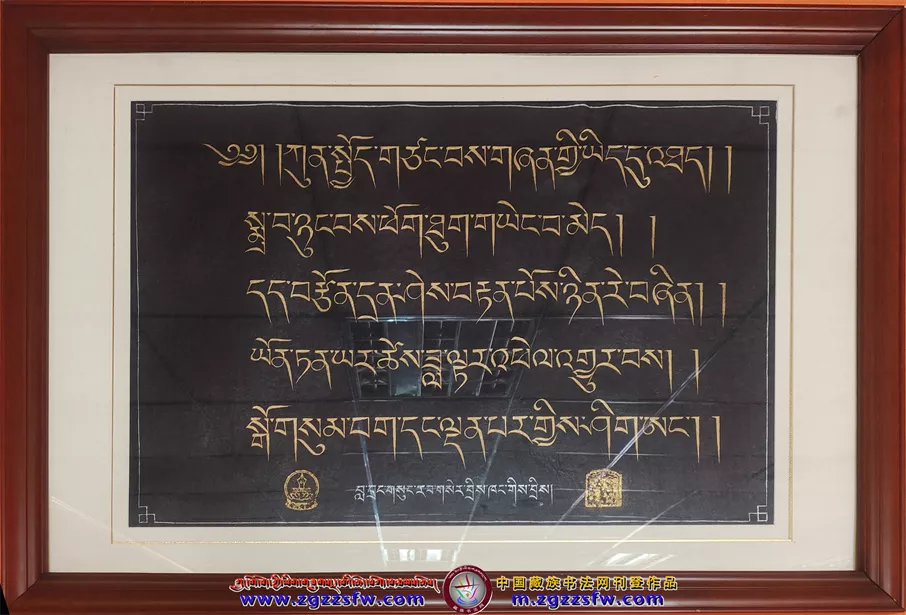 ༄༅། །ཀུན་སྤྱོད་གཙང་བས་གཞན་གྱི་ཡིད་དུ་འཐད། །
སྨྲ་བ་ཉུང་བས་ཕོག་ཐུག་གཡེང་བ་མེད། །
དད་བརྩོན་དྲན་ཤེས་བརྟན་པོས་ཉིན་རེ་བཞིན། །
ཡོན་ཏན་ཡར་ཚེས་ཟླ་ལྟར་འཕེལ་འགྱུར་བས། །
སྒོ་གསུམ་བག་དང་ལྡན་པར་གྱིས་ཤིག་ཨང་། །
བླ་བྲང་གསུང་རབ་གསེར་བྲིས་ཁང་གིས་བྲིས།
中国藏族书法网刊登作品
www.zgzzsfw.com m.zgzzsfw.com